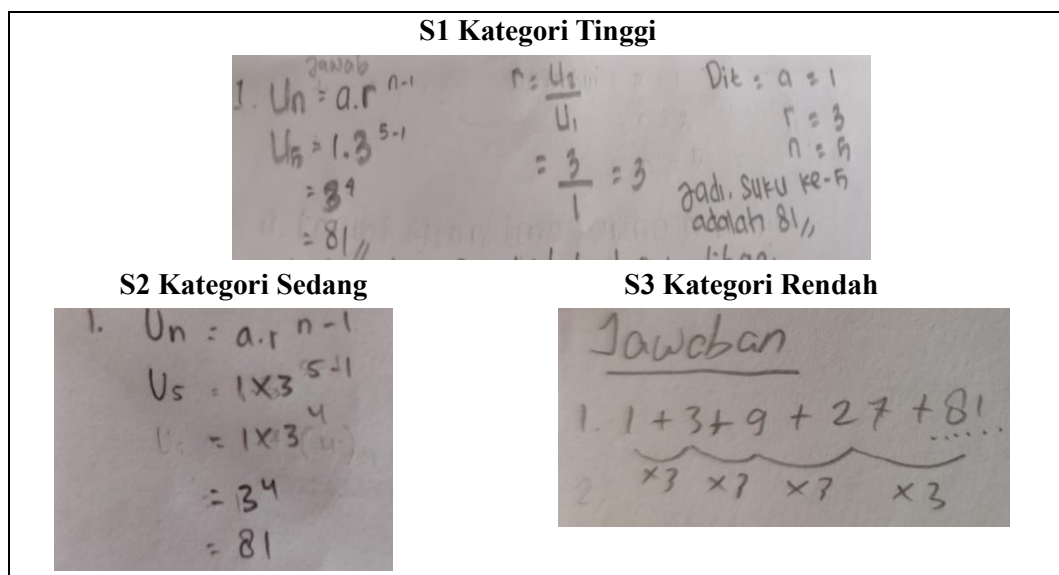 S1 Kategori Tinggi
Jawab
1. Un = a.r^(n-1)
U5 = 1.3^(5-1)
= 3^4
= 81 //
r = U2/U1
= 3/1 = 3
Dit : a = 1
r = 3
n = 5
Jadi, suku ke-5
adalah 81 //
S2 Kategori Sedang
1. Un = a.r^(n-1)
U5 = 1x3^(5-1)
= 1x3^4
= 3^4
= 81
S3 Kategori Rendah
Jawaban
1. 1 + 3 + 9 + 27 + 81 .....
x3 x3 x3 x3
2